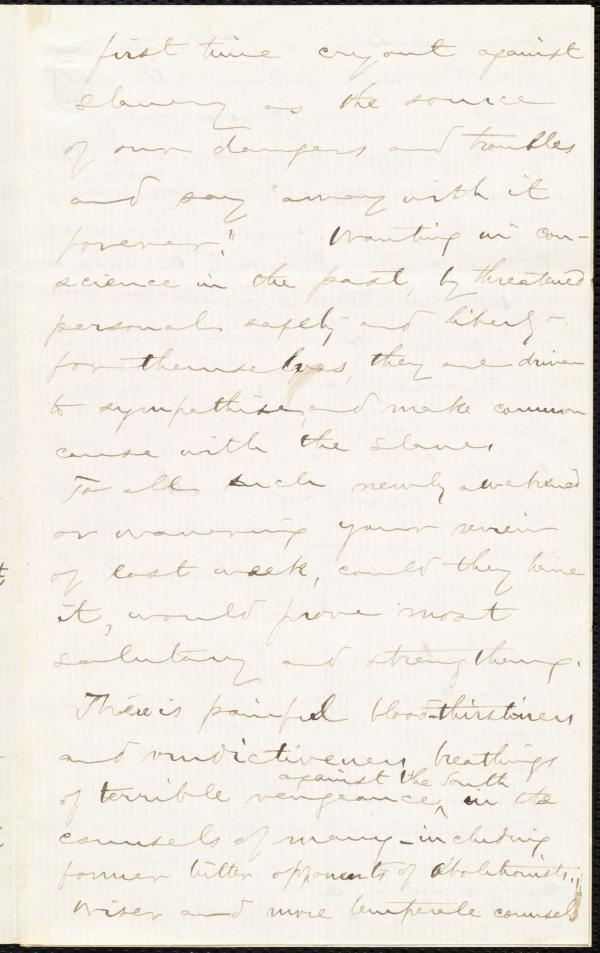 first time cry out against
slavery as the source
of our dangers and troubles
and say "away with it
forever." Wanting in con-
science in the past, by threatened
personal safety and liberty
for themselves, they are driven
to sympathise, and make common
cause with the slave.
To all such newly awakened
or wavering your review
of last week, could they have
it, would prove most
salutary and strengthening.
There is painful bloodthirstiness
and vindictiveness, breathings
against the South
of terrible vengeance, in the
counsels of many - including
former bitter opponents of Abolitionists.
Wiser and more temperate counsels